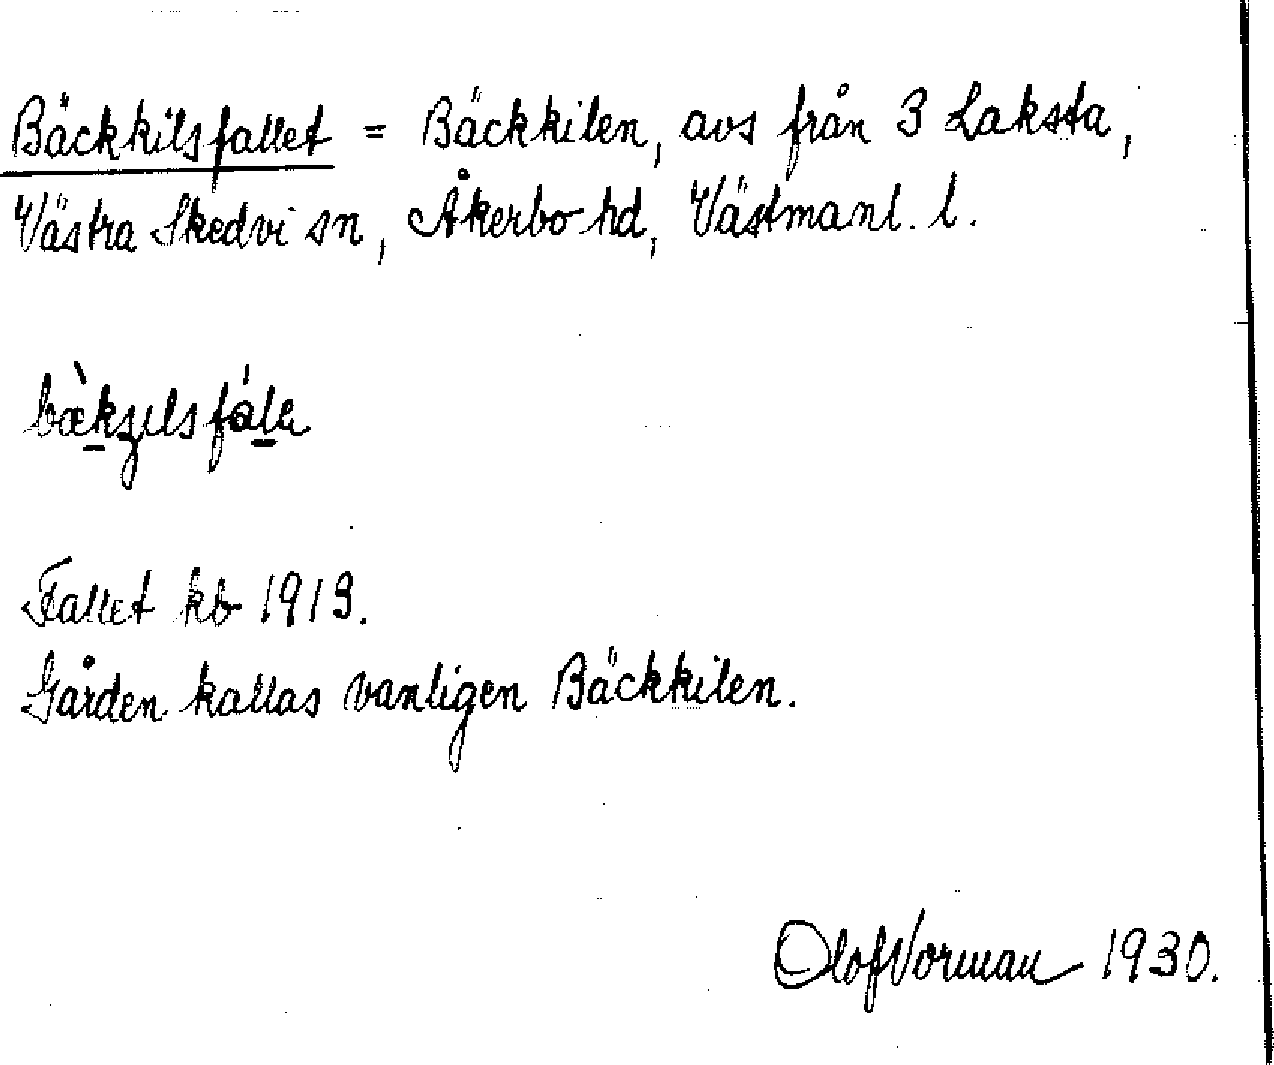 Bäckkilsfallet = Bäckkilen, avs från 3 Laksta,
Västra Skedvi sn, Åkerbo hd, Västmanl. l.
Fallet kb 1913.
Gården kallas vanligen Bäckkilen.
Olof Vorman 1930.